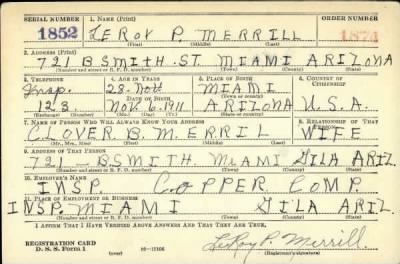 SERIAL NUMBER 1. NAME (Print) ORDER NUMBER
1852 LEROY P. MERRILL 1874
(First) (Middle) (Last)
2. ADDRESS (Print)
721 B SMITH ST. MIAMI ARIZONA
(Number and street or R. F. D. number) (Town) (County) (State)
3. TELEPHONE 4. AGE IN YEARS 5. PLACE OF BIRTH 6. COUNTRY OF CITIZENSHIP
Insp. 28. MIAMI
DATE OF BIRTH
123 Nov. 6. 1911 ARIZONA U.S.A.
(Exchange) (Number) (Mo.) (Day) (Yr.) (State or country)
7. NAME OF PERSON WHO WILL ALWAYS KNOW YOUR ADDRESS 8. RELATIONSHIP OF THAT PERSON
CLOVER B. MERRIL WIFE
(Mr., Mrs., Miss) (First) (Middle) (Last)
9. ADDRESS OF THAT PERSON
721 B SMITH. MIAMI GILA ARIZ.
(Number and street or R. F. D. number) (Town) (County) (State)
10. EMPLOYER'S NAME
INSP. COPPER COMP.
11. PLACE OF EMPLOYMENT OR BUSINESS
INSP. MIAMI GILA ARIZ.
(Number and street or R. F. D. number) (Town) (County) (State)
I AFFIRM THAT I HAVE VERIFIED ABOVE ANSWERS AND THAT THEY ARE TRUE.
REGISTRATION CARD
D. S. S. Form 1 (over) LeRoy P. Merrill.
(Registrant's signature)